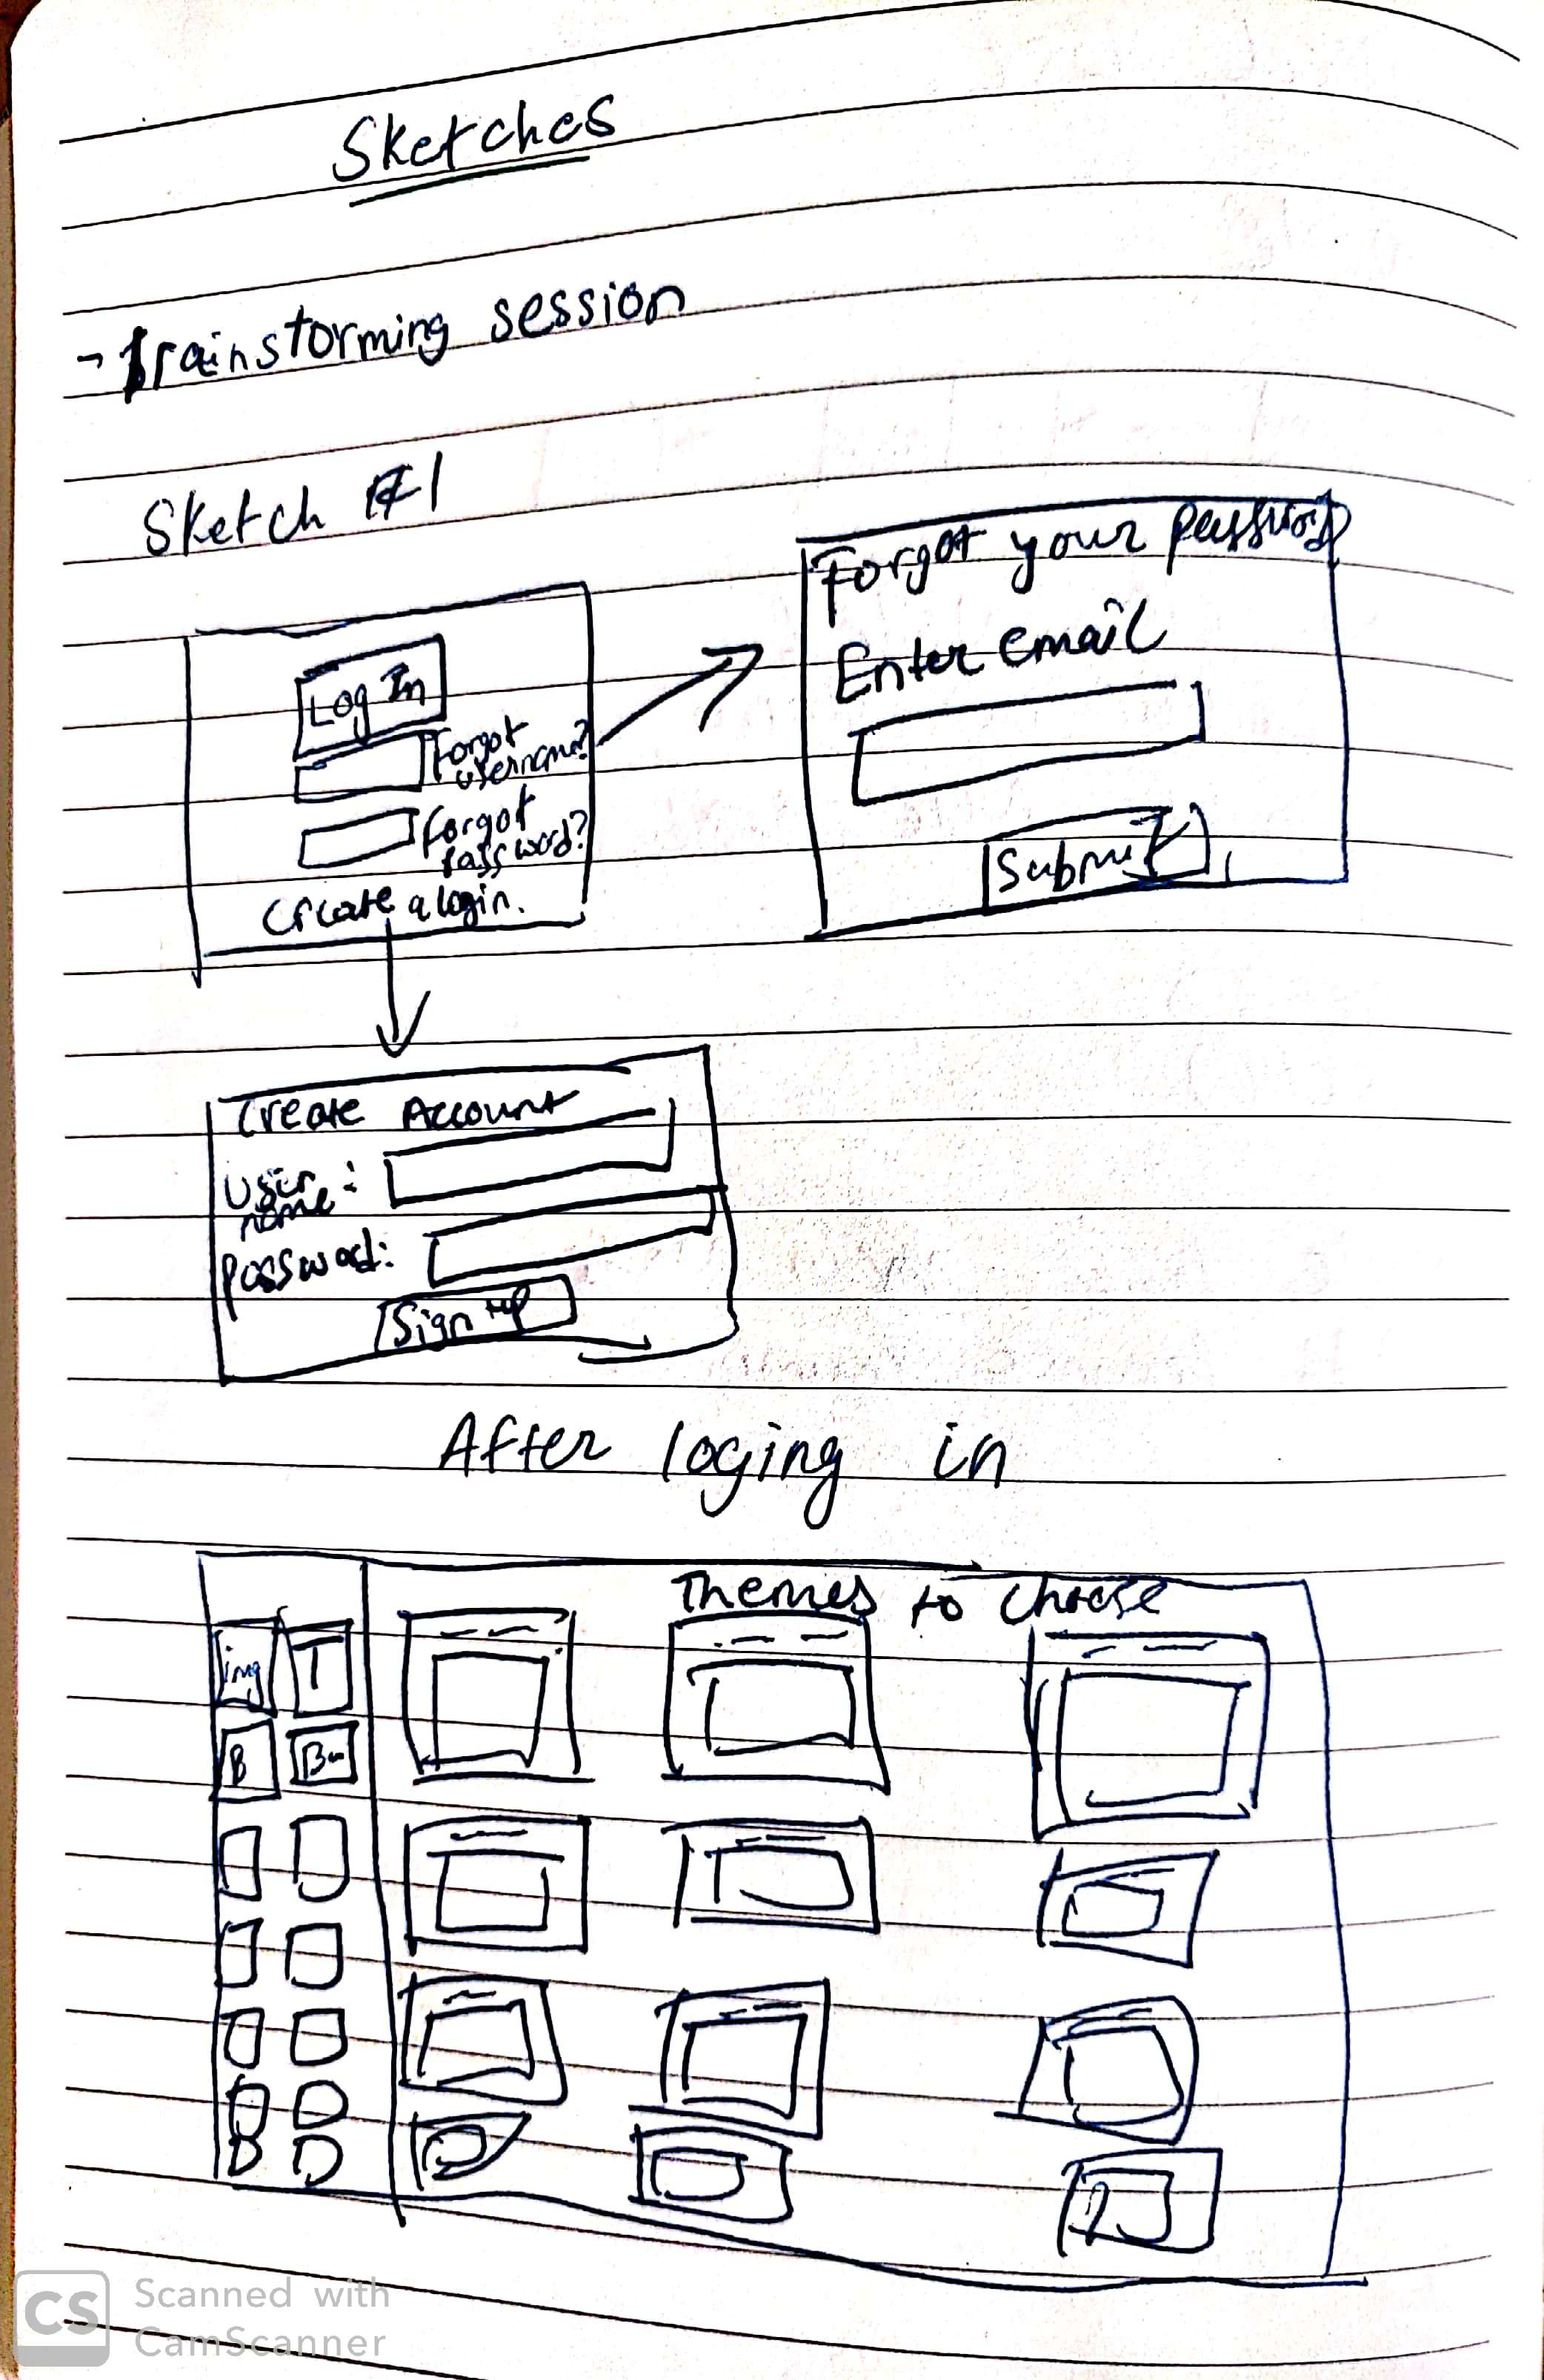 Sketches
- Brainstorming session
Sketch #1
Log In
Forgot
username?
Forgot
password?
Create a login.
Forgot your password
Enter email
Submit
Create Account
User
name :
Password:
Sign up
After loging in
Themes to choose
img T
B Bu
Scanned with
CS
CamScanner